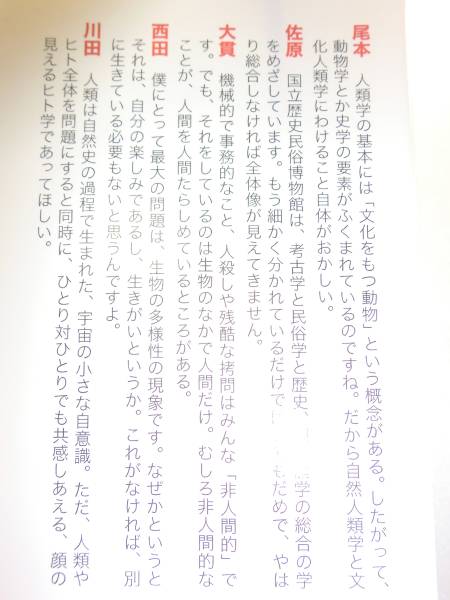 尾本　人類学の基本には「文化をもつ動物」という概念がある。したがって、
動物学とか史学の要素がふくまれているのですね。だから自然人類学と文
化人類学にわけること自体がおかしい。
佐原　国立歴史民俗博物館は、考古学と民俗学と歴史、学の総合の学
をめざしています。もう細かく分かれているだけでもだめで、やは
り総合しなければ全体像が見えてきません。
大貫　機械的で事務的なこと、人殺しや残酷な拷問はみんな「非人間的」で
す。でも、それをしているのは生物のなかで人間だけ。むしろ非人間的な
ことが、人間を人間たらしめているところがある。
西田　僕にとって最大の問題は、生物の多様性の現象です。なぜかというと
それは、自分の楽しみであるし、生きがいというか。これがなければ、別
に生きている必要もないと思うんですよ。
川田　人類は自然史の過程で生まれた、宇宙の小さな自意識。ただ、人類や
ヒト全体を問題にすると同時に、ひとり対ひとりでも共感しあえる、顔の
見えるヒト学であってほしい。